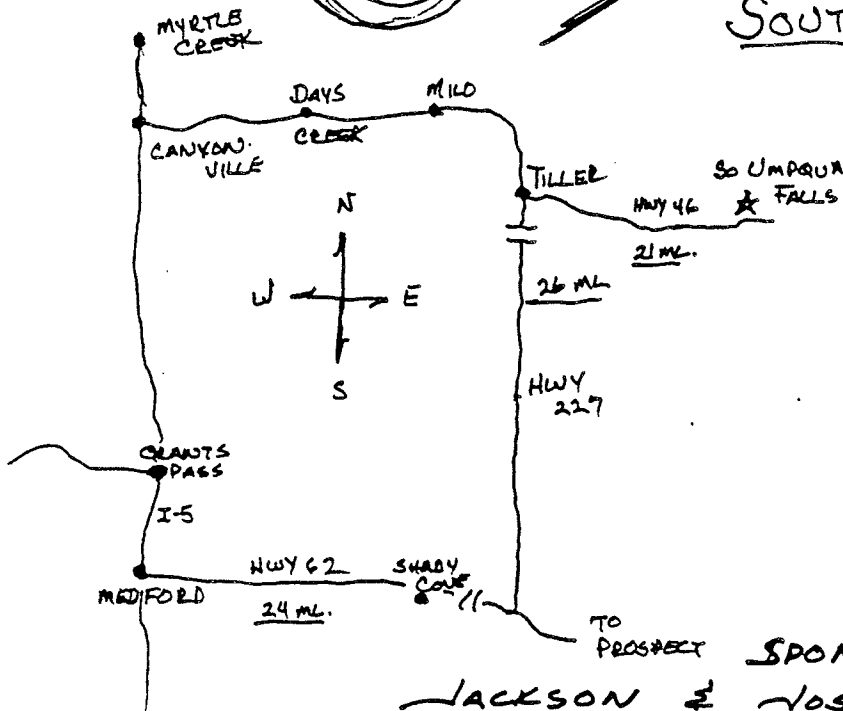 SOUT
MYRTLE
CREEK
DAYS
CREEK
MILO
CANYON.
VILLE
TILLER
SO UMPQUA
FALLS
HWY 46
21 ML.
N
W E
S
26 ML
HWY
227
GRANTS
PASS
I-5
HWY 62
SHADY
COVE
MEDFORD
24 ML.
TO
PROSPECT
SPON
JACKSON & JOS